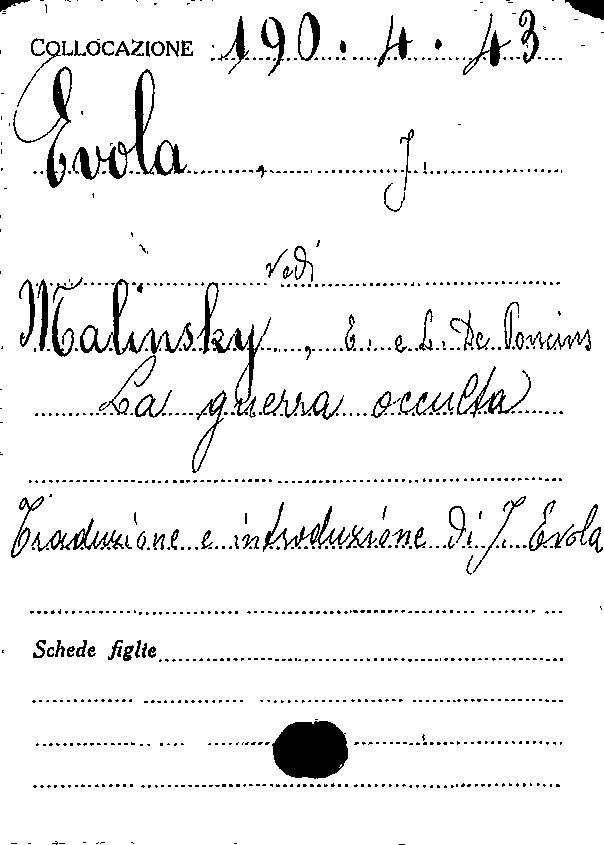 COLLOCAZIONE 190.4.43
Evola, J.
vedi
Malinsky, E. e L. De Poncins
La guerra occulta
Traduzione e introduzione di J. Evola
Schede figlie